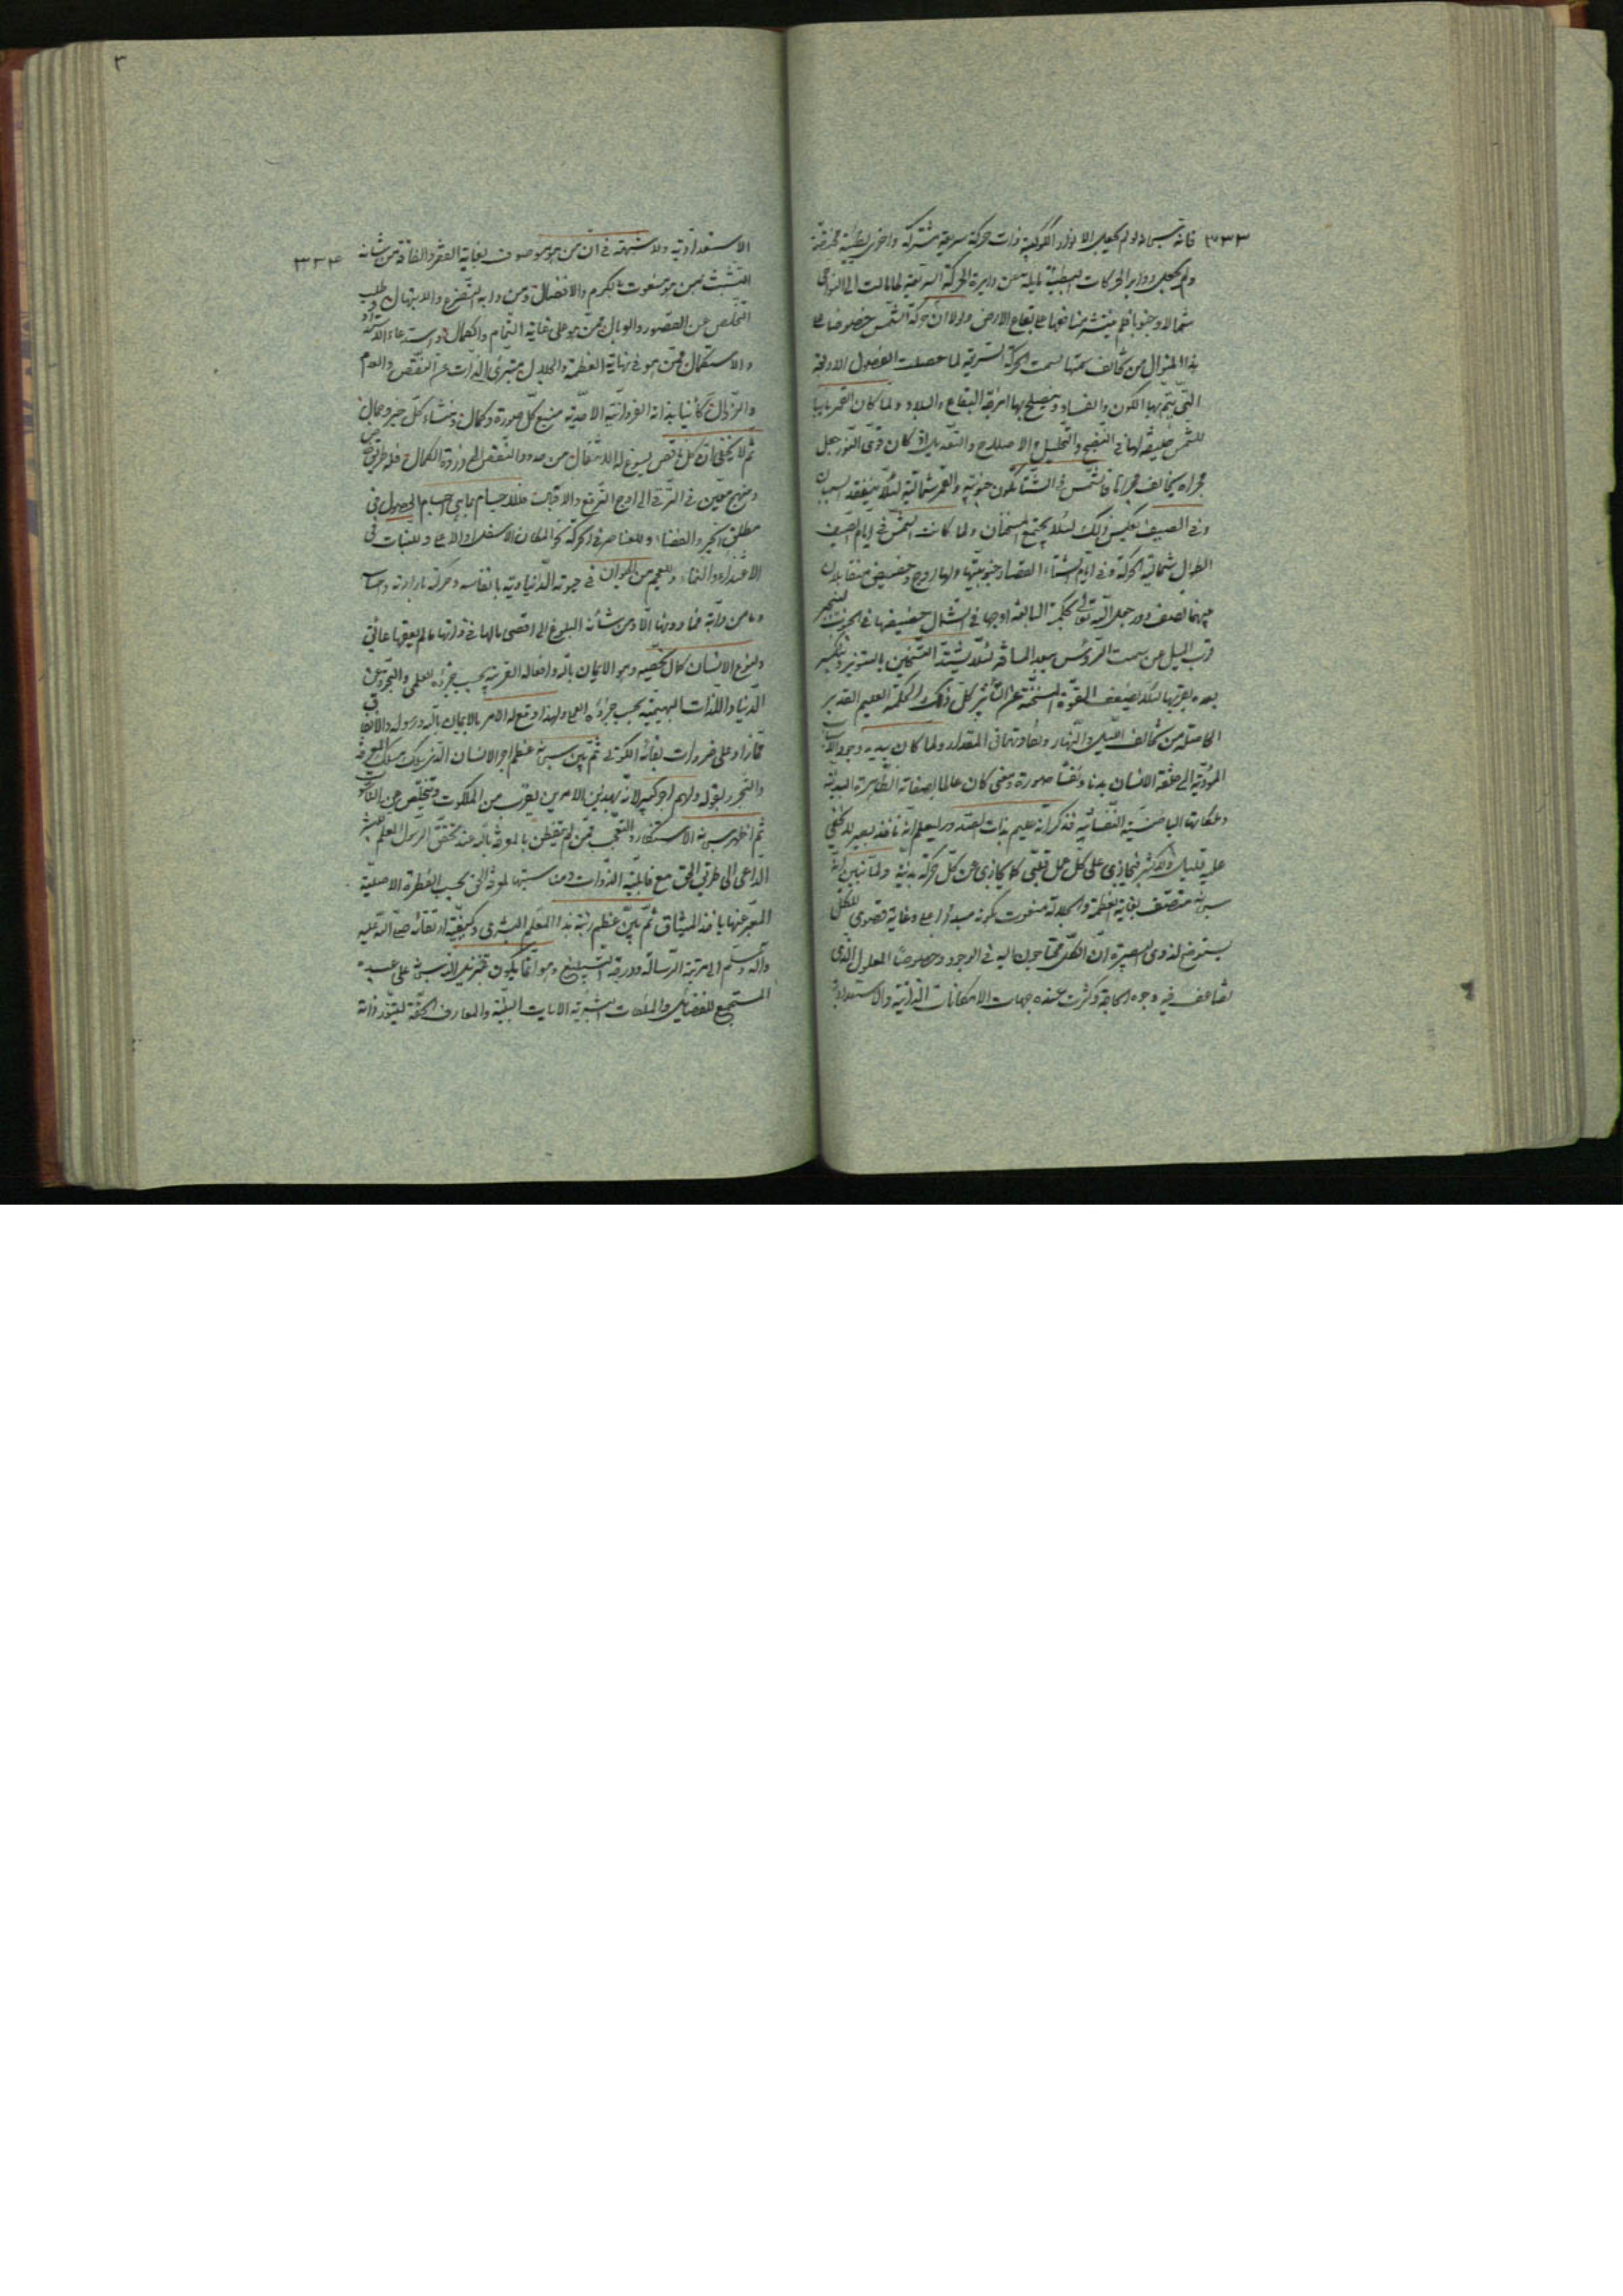 ٣٣٣
فانه سبحانه لو لم يجعل الانوار الكوكبية ذات حركة سريعة مشتركة واخرى بطيئة مختصة
ولم يجعل دواير الحركات البطيئة مايلة عن دايرة الحركة السريعة لما مالت الى النواحى
شمالا وجنوبا فلم ينتشر منافعها على بقاع الارض ولولا ان حركة الشمس خصوصا على
هذا المنوال من تخالف سمتها لسمت الحركة السريعة لما حصلت الفصول الاربعة
التى يتم بها الكون والفساد وينصلح بها امزجة البقاع والبلاد ولما كان القمر نايبا
للشمس خليفة لها فى النضج والتحليل والاصلاح والتعديل اذا كان قوى النور جعل
مجراه يخالف مجراها فالشمس فى الشتا تكون جنوبية والقمر شمالية لئلا ينفقد السببان
وفى الصيف بعكس ذلك لئلا يجتمع المسخنان ولما كانت الشمس فى ايام الصيف
الطوال شمالية الحركة وفى ايام الشتاء القصار جنوبيتها ولها اوج وحضيض متقابلان
بينهما نصف دور جعل الله تعالى بحكمته البالغة اوجها فى الشمال حضيضها فى الجنوب لينجبر
قرب الميل من سمت الرؤس ببعد المسافة لئلا يشتد التسخين بالتنوير وينكسر
بعده بقربها لئلا يضعف القوة المسخنة عن التأثير كل ذلك لحكمة العليم القدير
الحاصلة من تخالف الليل والنهار وتفاوتهما فى المقدار ولما كان بيده وجود الاسباب
المؤدية الى خلقة الانسان بدنا ونفسا صورة ومعنى كان عالما بصفاته الظاهرة البدنية
وملكاتها الباطنية النفسانية فذكر انه عليم بذات الصدور ليعلم انه ناقد بصير لا يخفى
عليه قليل ولا كثير فيجازى على كل عمل قلبى كما يجازى عن كل حركة بدنية ولما تبين انه
سبحانه متصف بغاية العظمة والجلالة منعوت بكونه مبدأ اعلى وغاية قصوى للكل
يستوضح لذوى البصيرة ان الكل محتاجون اليه فى الوجود وخصوصا المعلول الذى
تضاعف فيه وجوه الحاجة وكثرت عنده جهات الامكانات الذاتية والاستعدادية
٣
٣٣٤
الاستعدادية ولا شبهة فى ان من هو موصوف بغاية الفقر والفاقة من شأنه
التشبث بمن هو منعوت بالكرم والافضال ومن دابه التضرع والابتهال وطلب
التخلص عن القصور والوبال ممن هو على غاية التمام والكمال واستدعاء الاستمداد
والاستكمال ممن هو فى نهاية العظمة والجلال متبرئ الذات عن النقص والعدم
والزوال كائنا بذاته الفردانية الاحدية منبع كل صورة وكمال ومنشاء كل خير وجمال
ثم لا يخفى ان كل ناقص يسوغ له الانتقال من حدود النقص الى ذروة الكمال فله طريق خاص
ومنهج معين فى الترقى الى اوج الترفع والاقبال فللاجسام بما هى اجسام الحصول فى
مطلق الحيز والفضاء وللعناصر فى الحركة نحو المكان الاسفل او الاعلى وللنبات فى
الاغتذاء والنماء وللعجم من الحيوان فى حيوته الدنياوية بانفاسه وحركة بارادته وحساسه
وما من دابة فما دونها الا ومن شأنه البلوغ الى اقصى مالها فى ذاتها ما لم يعقها عائق
ولنوع الانسان كمال يخصه وهو الايمان بالله وافعاله القريبة بحسب جزؤه العلمى والتجرد عن
الدنيا واللذات البهيمية بحسب جزؤه العملى ولهذا وقع له الامر بالايمان بالله ورسوله والانفاق
مما زاد على ضرورات بقائه الكونى ثم بين سبحانه عظم اجر الانسان الذى سلك مسلك المعرفة
والتجرد بقوله ولهم اجر كبير لانه بهذين الامرين يقرب من الملكوت ويتخلص عن الناسوت
ثم اظهر سبحانه الاستنكار والتعجب ممن لم يتفطن بالمعرفة بالله عند تحقق الرسول المعلم للبشر
الداعى الى طريق الحق مع قابلية الذوات ومناسبتها لمعرفة الحق بحسب الفطرة الاصلية
المعبر عنها باخذ الميثاق ثم بين عظم رتبة هذا المعلم البشرى وكيفية ارتقائه صلى الله عليه
وآله وسلم الى مرتبة الرسالة ودرجة التبليغ وهو انما يكون بتنزيل الله سبحانه على عبده
المستجمع للفضائل والملكات البشرية الايات البينة والمعارف الحقة ليتنور ذاته